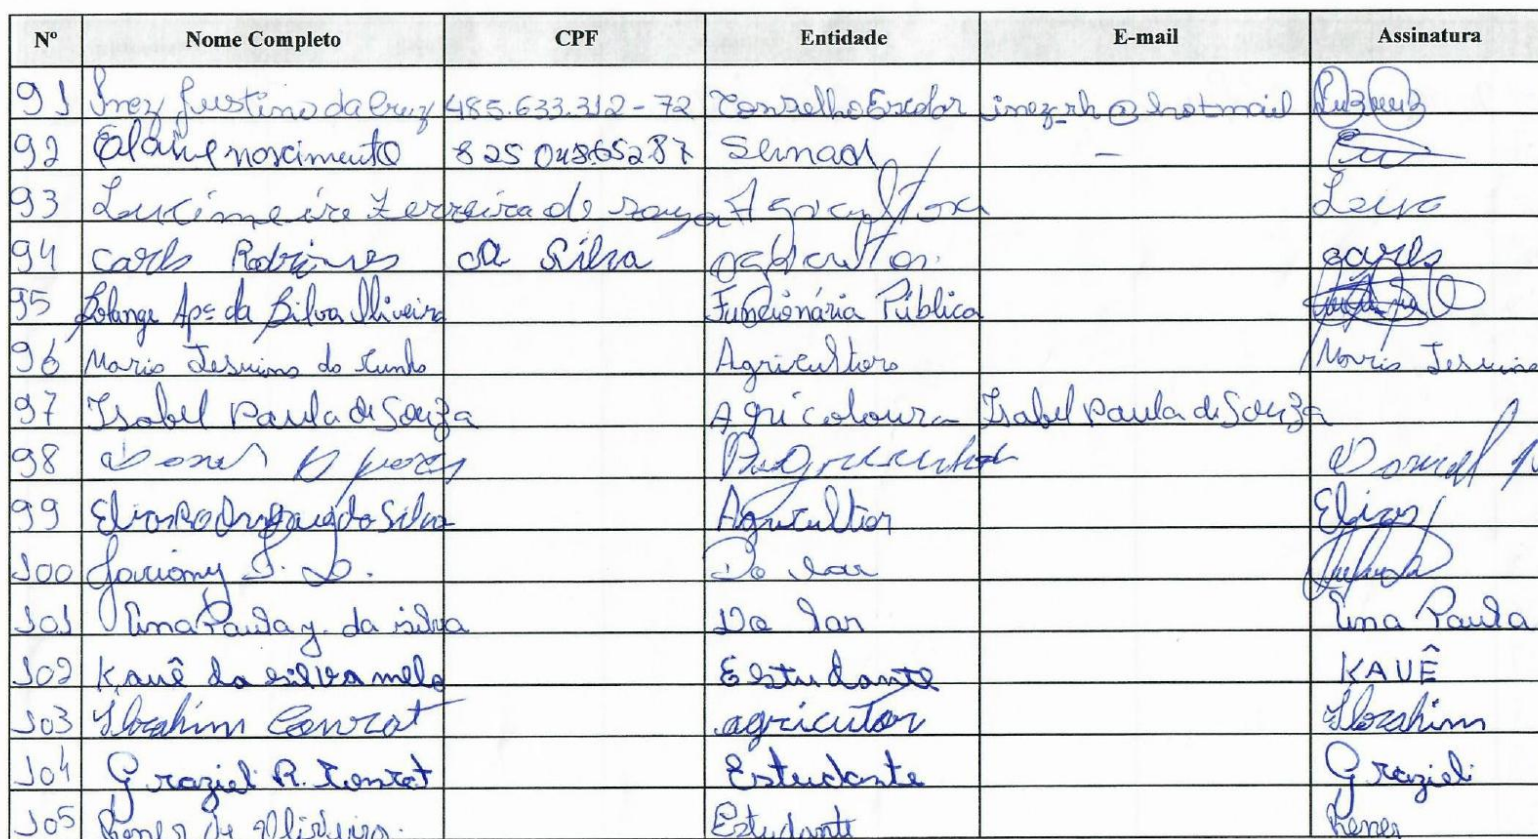 Nº Nome Completo CPF Entidade E-mail Assinatura
91 Inez Justino da Cruz 485.633.312-72 Conselho Escolar inez_rh@hotmail
92 Elaine nascimento 825 048652 87 Semad -
93 Lucimeire Ferreira de souza Agricultora
94 carls Rodrigues da Silva carls
95 Solange Apª da Silva Oliveira Funcionária Pública
96 Maria Jesuina da Cunha Agricultora Maria Jesuina
97 Isabel Paula de Souza Agricoloura Isabel Paula de Souza
98
99 Agricultor Elias
100 Do Lar
101 Ana Paula y. da silva Do Lar Ana Paula
102 Kauê da silva melo Estudante KAUÊ
103 Ibrahim Conrat agricutor Ibrahim
104 Graziel R. Conrat Estudante Graziel
105 Estudante Rener